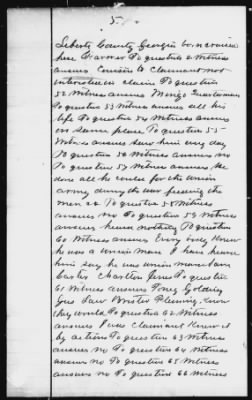 5
Liberty County Georgia born & raised
here Farmer To question 2 Witness
answers Cousin to Claimant not
interested in claim To question
52 Witness answers Mingo
To question 53 Witness answers all his
life To question 54 Witness answers
on same place To question 55
Witness answers saw him every day
To question 56 Witness answers no
To question 57 Witness answers He
done all he could for the union
army during the war feeding the
men &c To question 58 Witness
answers no To question 59 Witness
answers heard nothing To question
60 Witness answers Every body knew
he was a union man I have heard
him say he was union man &
To question
61 Witness answers Tony Golding
know
they would To question 62 Witness
answers I was Claimant knew it
by actions To question 63 Witness
answers no To question 64 Witness
answers no To question 65 Witness
answers no To question 66 Witness